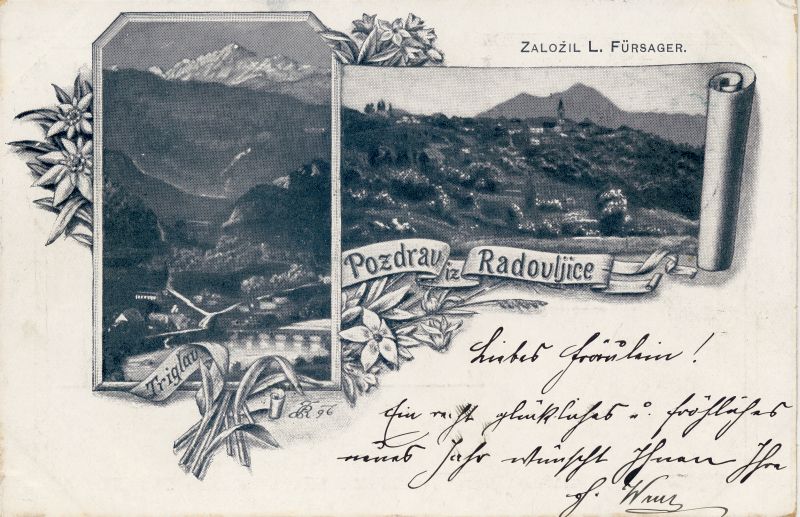 ZALOŽIL L. FÜRSAGER.
Pozdrav iz Radovljice
Triglav
96
Liebes Fräulein!
Ein recht glückliches u. fröhliches
neues Jahr wünscht Ihnen Ihre